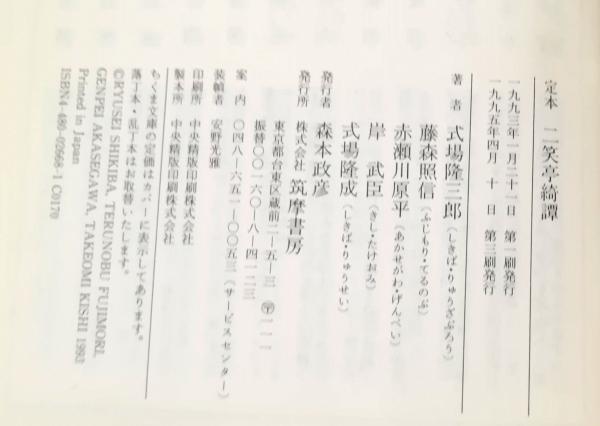 定本 二笑亭綺譚
一九九三年一月二十一日 第一刷発行
一九九五年四月 十 日 第三刷発行
著 者 式場隆三郎（しきば・りゅうざぶろう）
藤森照信（ふじもり・てるのぶ）
赤瀬川原平（あかせがわ・げんぺい）
岸 武臣（きし・たけおみ）
式場隆成（しきば・りゅうせい）
発行者 森本政彦
発行所 株式会社 筑摩書房
東京都台東区蔵前二―五―三 〒一一一
振替〇〇一六〇―八―四一二三
案 内 〇四八―六五一―〇〇五三（サービスセンター）
装幀者 安野光雅
印刷所 中央精版印刷株式会社
製本所 中央精版印刷株式会社
ちくま文庫の定価はカバーに表示してあります。
落丁本・乱丁本はお取替いたします。
©RYUSEI SHIKIBA, TERUNOBU FUJIMORI,
GENPEI AKASEGAWA, TAKEOMI KISHI 1993
Printed in Japan
ISBN4-480-02668-1 C0170